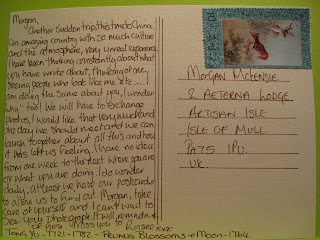 Morgan,
Another sudden trip, this time to China.
an amazing country with so much culture
and the atmosphere, very unreal experience.
I have been thinking constantly about what
you have wrote about, thinking of me,
seeing people who look like me etc... I
am doing the same about you, I wonder
"why" too! We will have to exchange
photos, I would like that very much and
one day we should meet and we can
laugh together about all this and how
it has left us feeling. I have no idea
from one week to the next where you are
or what you are doing. I do wonder
daily, at least we have our postcards
to allow us to find out Morgan, take
care of yourself and I can't wait to
see your photograph. It will remind me
of you. Miss you to Roger xxx
Tong Yu - 1721-1782 - Prunus Blossoms + Moon - 1764.
Morgan McKensie
2 Aeterna Lodge
Artisan Isle
Isle of Mull
PA75 1PU.
UK